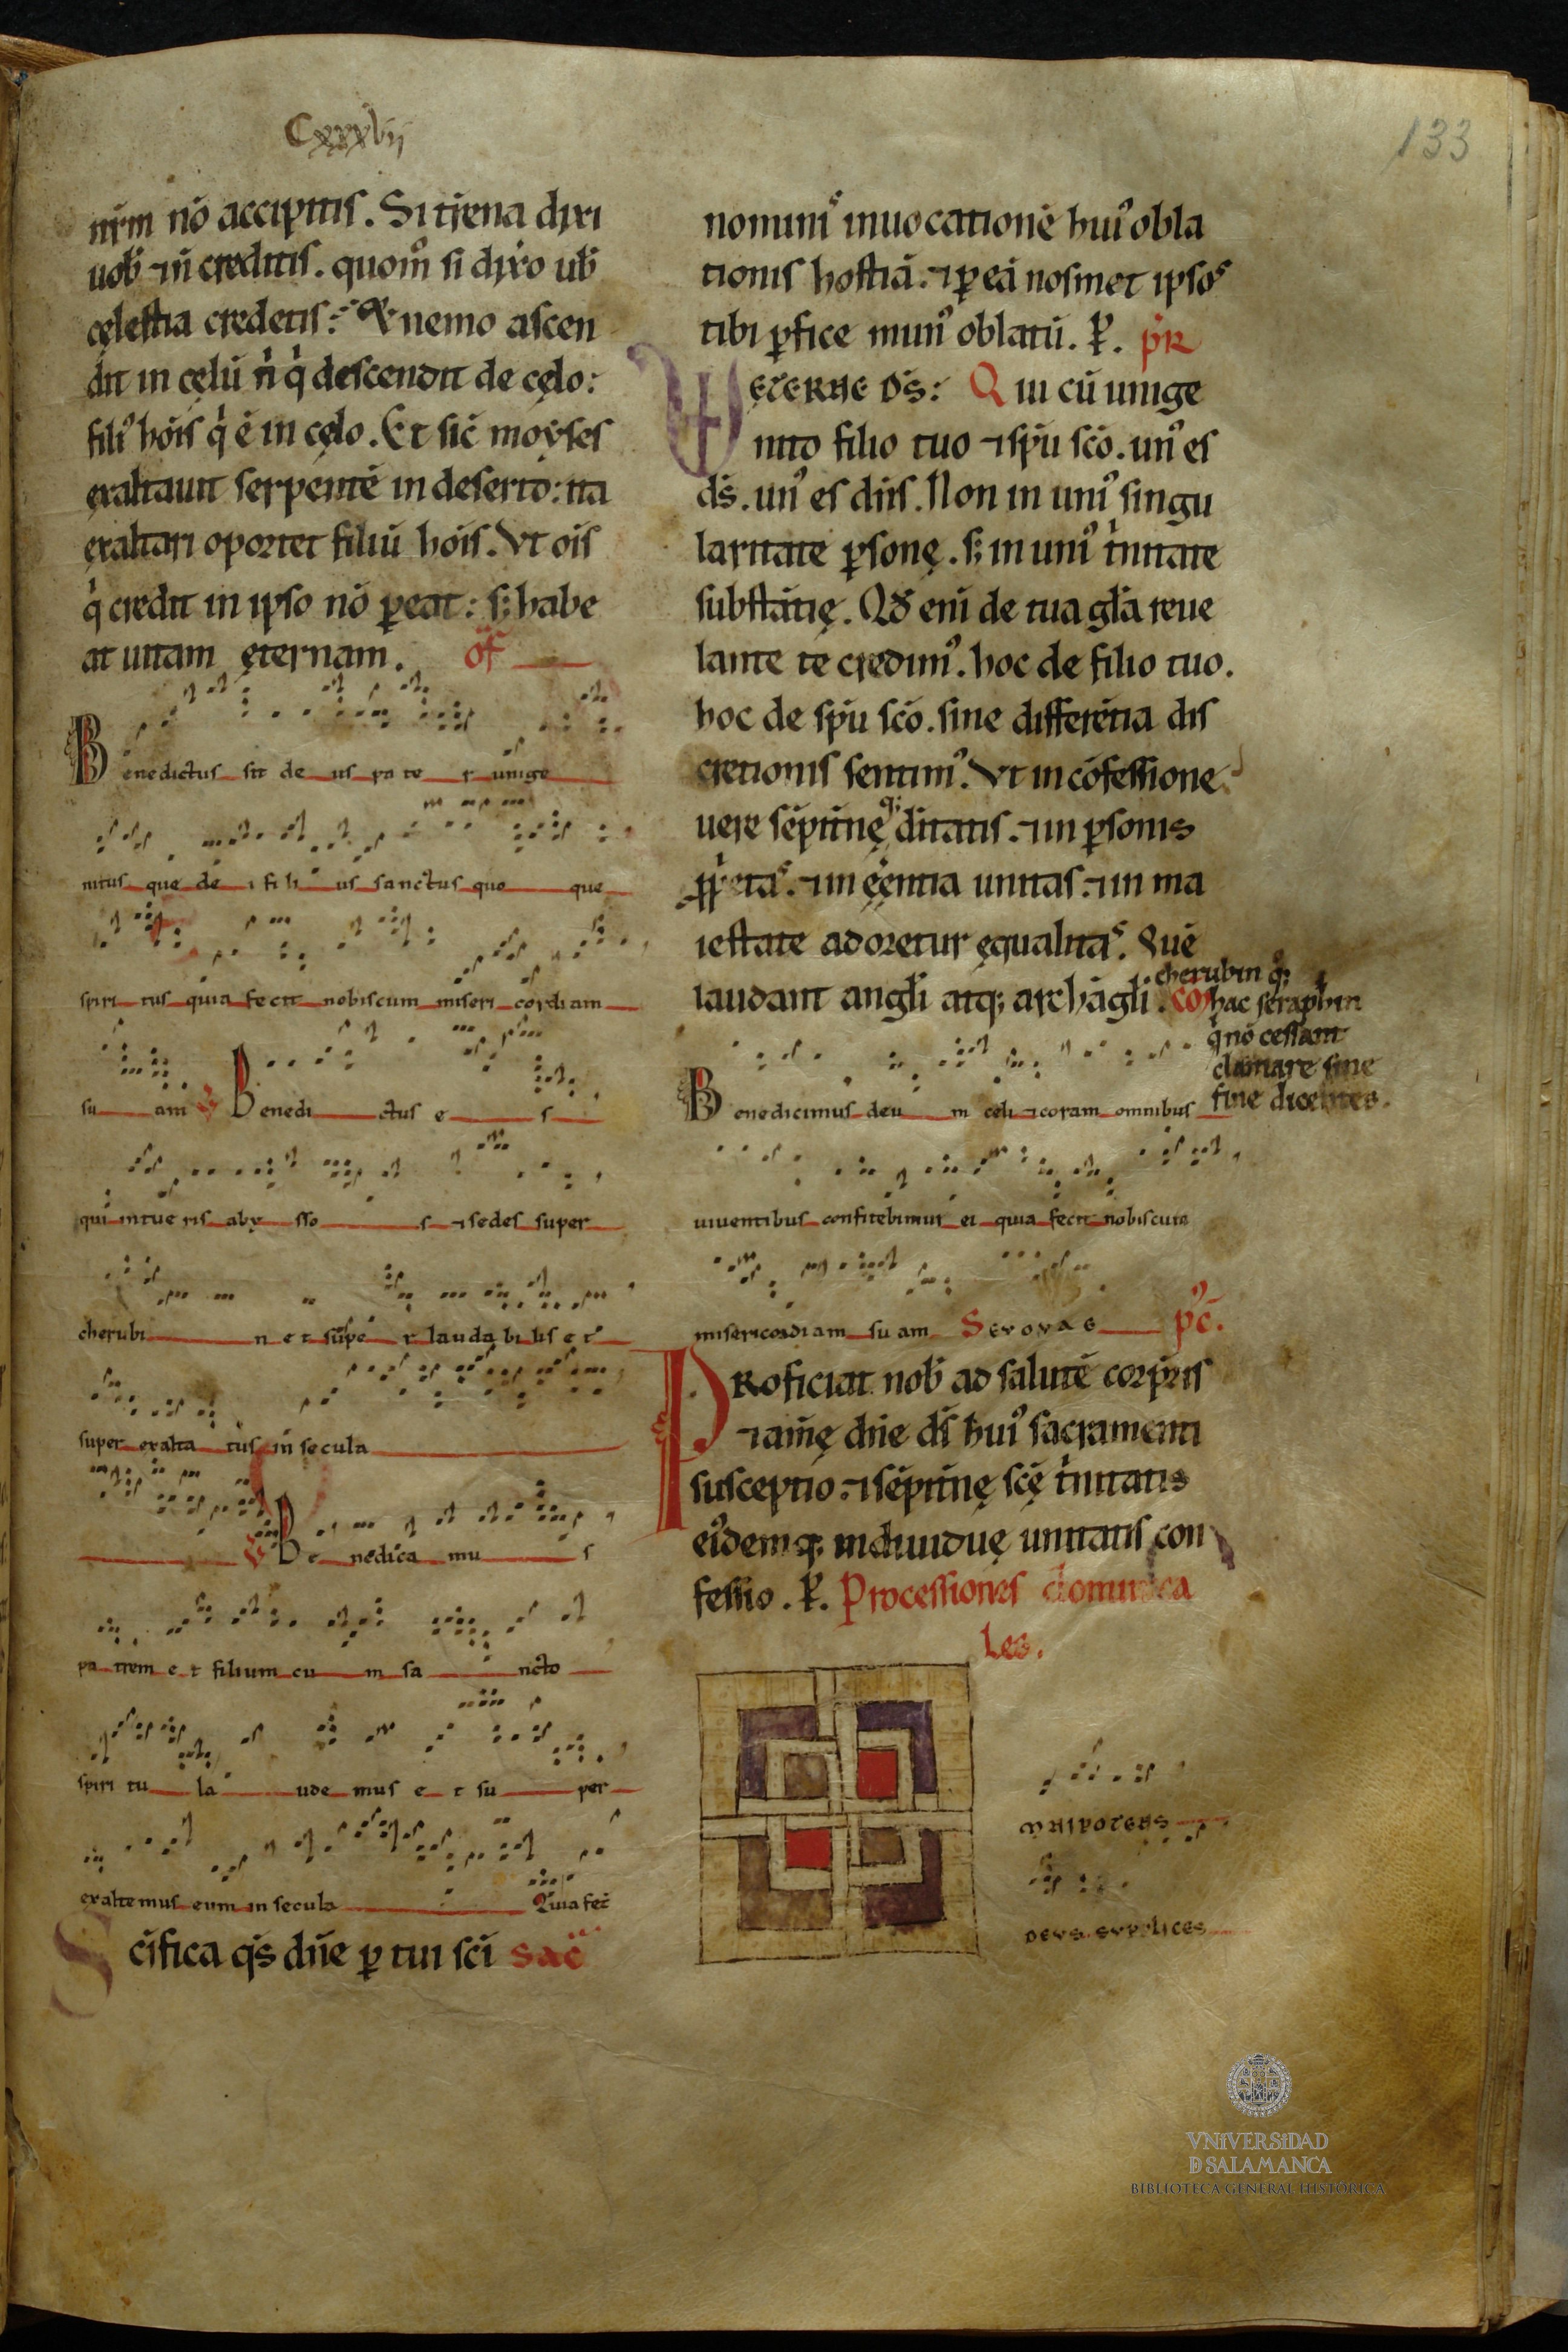 Cxxxvij
133
nr̄m nō accipitis. Si tr̄ena dixi
uob̄ ⁊ n̄ creditis. quom̊ si dixo ub̄
cęlestia credetis? Et nemo ascen
dit in cęlū n̄ q̇ descendit de cęlo:
filiꝰ hōis q̇ ē in cęlo. Et sic̄ moẏses
exaltauit serpentē in deserto: ita
exaltari oportet filiū hōis. Vt oīs
q̇ credit in ipso nō ꝑeat: sꝫ habe
at uitam ęternam. of̄
Benedictus sit de us pa te r unige
nitus que de i fi li us sanctus quo que
spiri tus quia fecit nobiscum miseri cordiam
su am ℣ Benedi ctus e s
qui intue ris aby sso s ⁊ sedes super
cherubi n e t supe r lauda bi lis e t
super exalta tus in secula
℣ Be nedica mu s
pa trem e t filium cu m sa ncto
spiri tu la ude mus e t su per
exalte mus eum in secula Quia fec̄
Scīfica qs̄ dn̄e ꝑ tui sc̄i sac̄
nominis inuocationē huiꝰ obla
tionis hostiā. ⁊ ꝑ eā nosmet ipsos
tibi ꝑfice munꝰ oblatū. P̄. pr̄
ęterne ds̄: Qui cū unige
nito filio tuo ⁊ sp̄u sc̄o. unꝰ es
ds̄. unꝰ es dn̄s. Non in uniꝰ singu
laritate ꝑsonę. sꝫ in uniꝰ tīnitate
substātię. Qd̄ eni de tua gl̄a reue
lante te credimꝰ. hoc de filio tuo.
hoc de sp̄u sc̄o. sine differētia dis
cretionis sentimꝰ. Vt in cōfessione
uere sēpit̄nę qꝫ ditatis. ⁊ in ꝑsonis
ꝓṗetas. ⁊ in ęēntia unitas. ⁊ in ma
iestate adoretur ęqualitas. Quē
laudant angl̄i atqꝫ archāgl̄i. co
cherubin qꝫ
hac seraphin
q̇ nō cessant
clamare sine
fine dicentes.
Benedicimus deu m celi ⁊ coram omnibus
uiuentibus confitebimur ei quia fecit nobiscum
misericordiam su am Seuouae pc̄.
Proficiat nob̄ ad salutē corp̄ris
⁊ anīę dn̄e ds̄ huiꝰ sacramenti
susceptio. ⁊ sēpit̄nę sc̄ę t̄nitatis
eiꝰdemqꝫ indiuiduę unitatis con
fessio. P̄. Processiones dominica
les.
mnipotens
deus supplices
VNiVERSiDAD
D SALAMANCA
BIBLIOTECA GENERAL HISTÓRICA